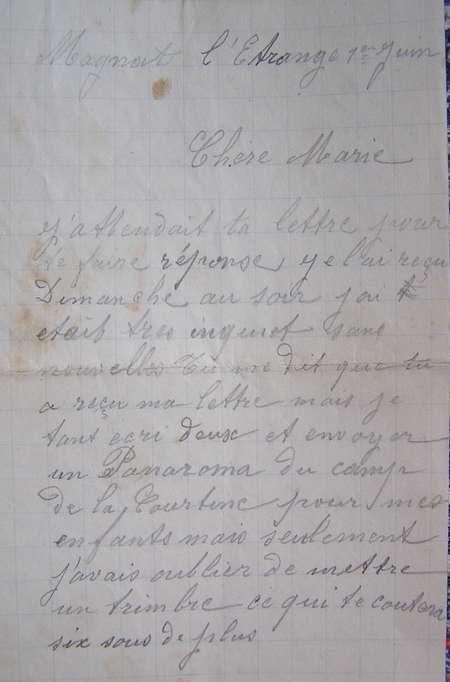 Magnat l'Etrange 1er Juin
Chère Marie
j'attendait ta lettre pour
te faire réponse, je l'ai reçu
Dimanche au soir j'ai
était tres inquiet sans
nouvelles Tu me dit que tu
a reçu ma lettre mais je
tant ecri deux et envoyer
un Panaroma du camp
de la Courtine pour mes
enfants mais seulement
j'avais oublier de mettre
un trimbre ce qui te coutera
six sous de plus